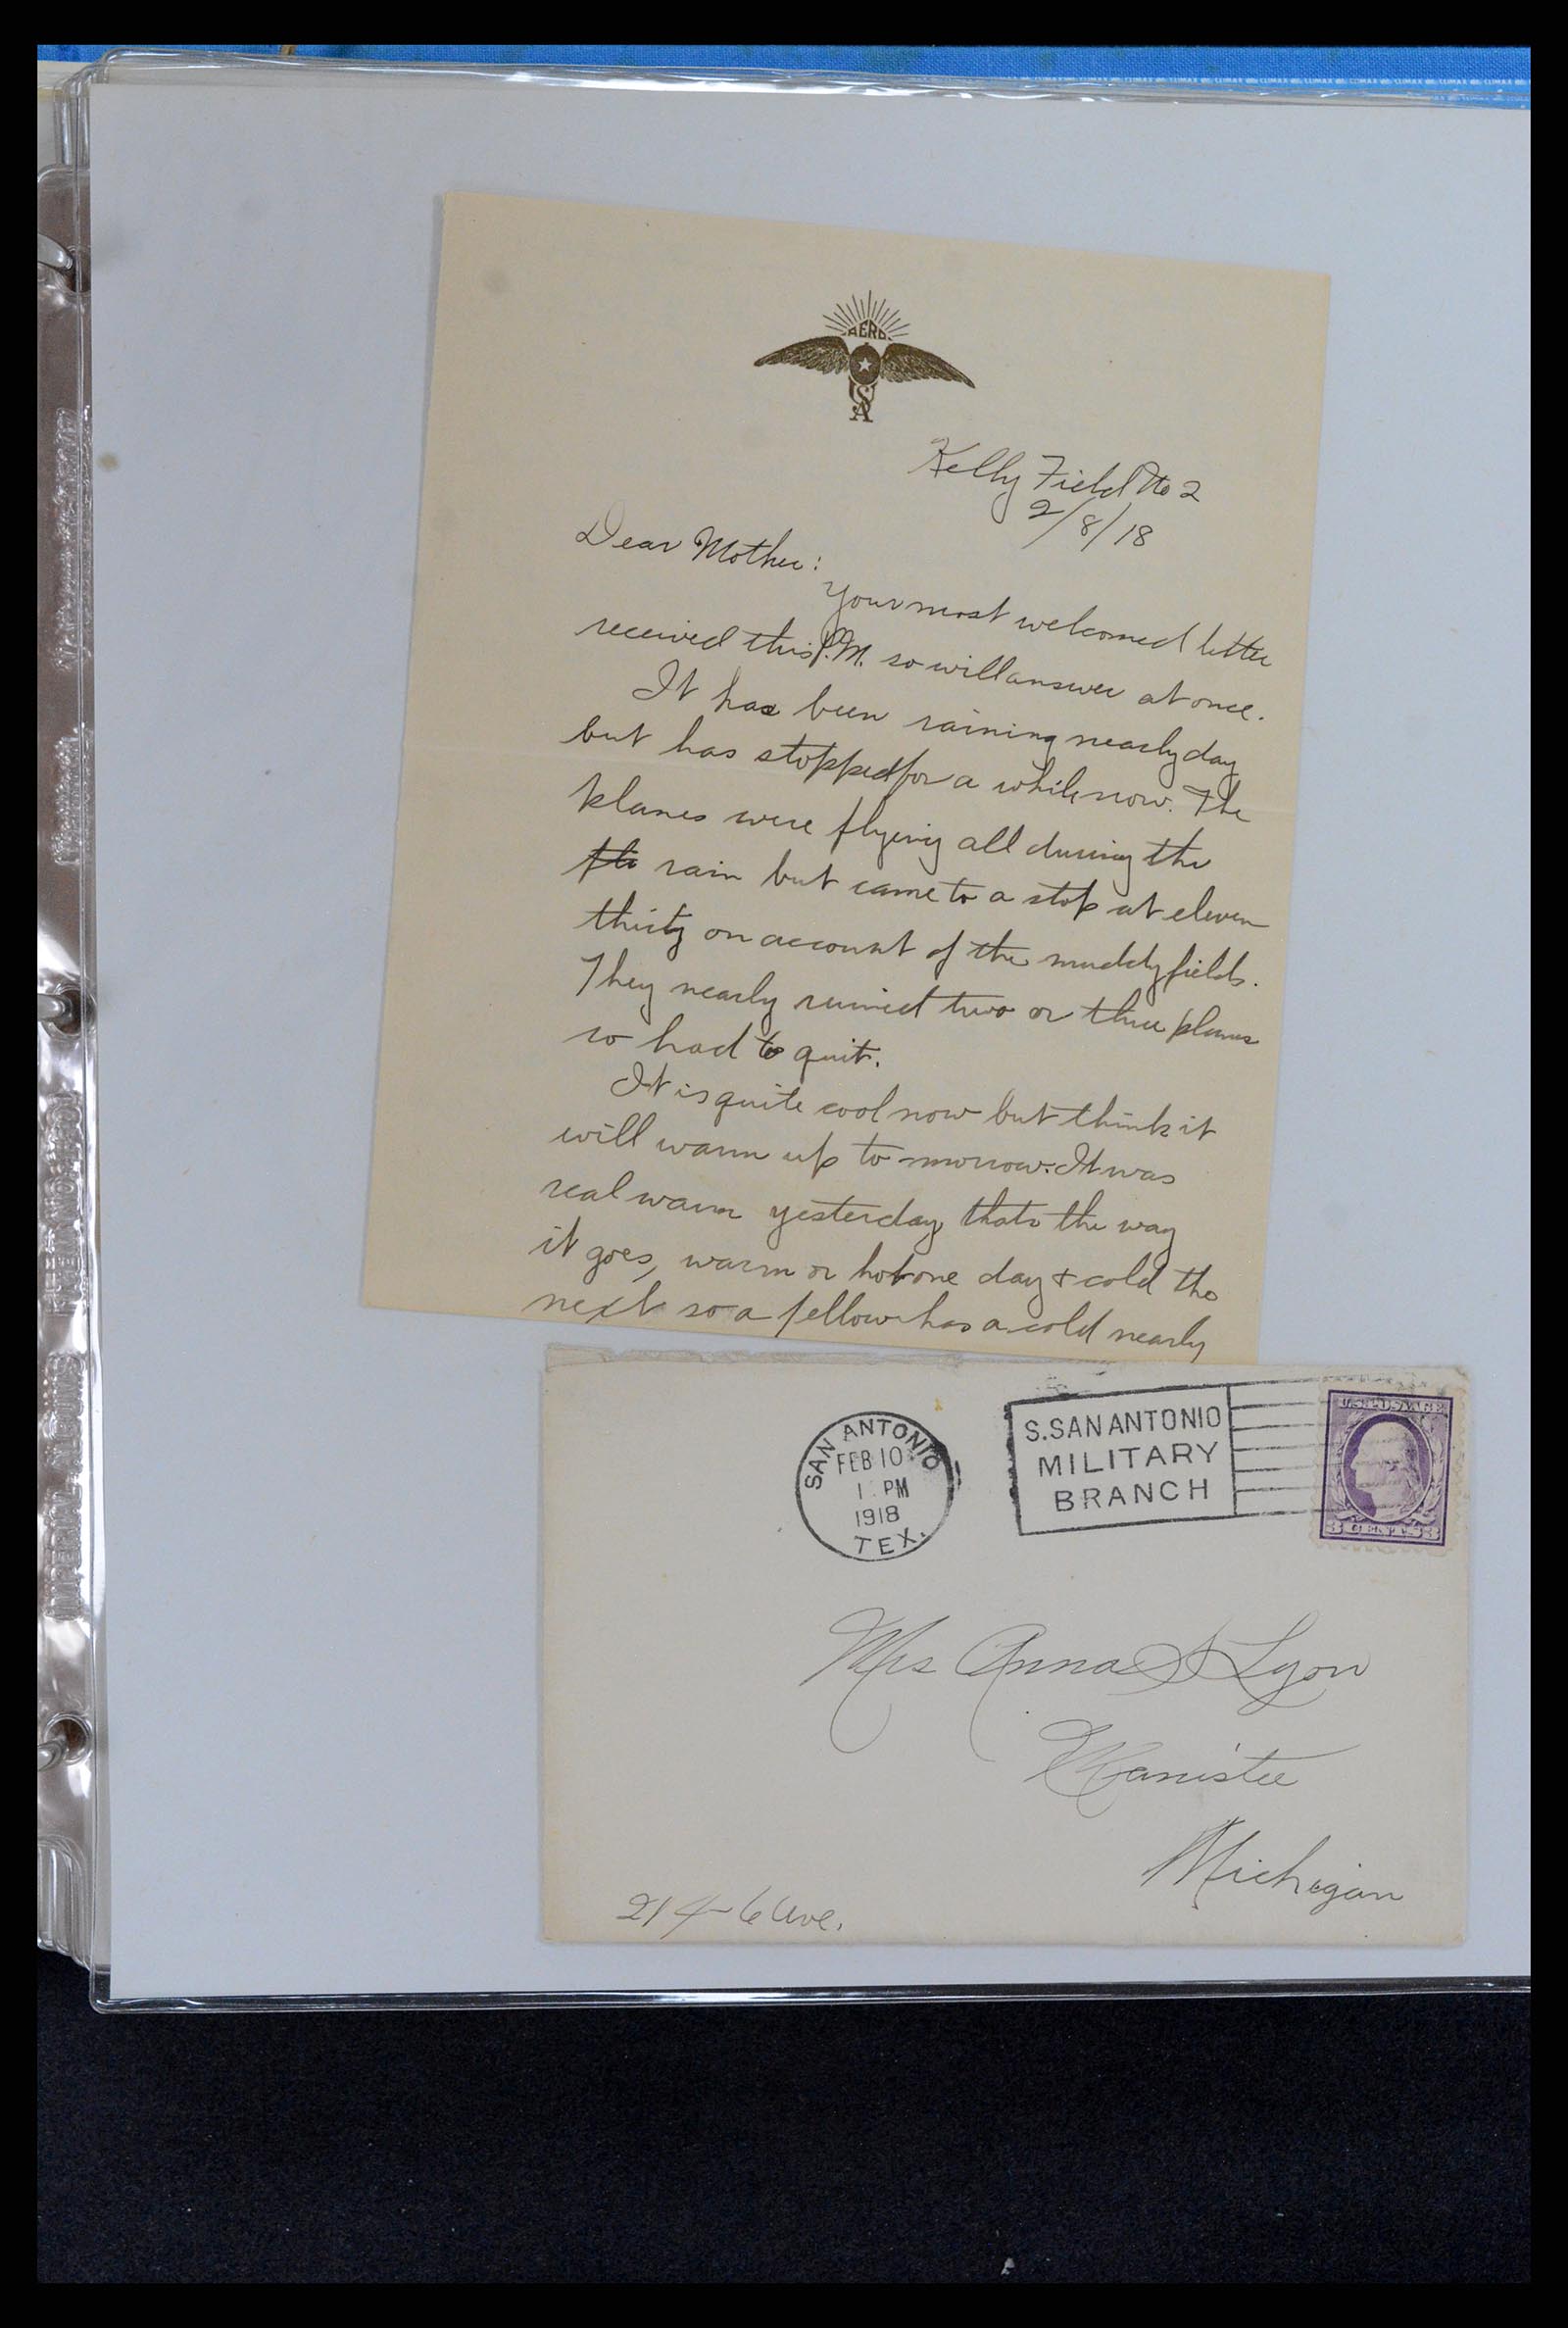 AERO
USA
Kelly Field No 2
2/8/18
Dear Mother:
Your most welcomed letter
received this P.M. so will answer at once.
It has been raining nearly day
but has stopped for a while now. The
planes were flying all during the
the rain but came to a stop at eleven
thirty on account of the muddy fields.
They nearly ruined two or three planes
so had to quit.
It is quite cool now but think it
will warm up to-morrow. It was
real warm yesterday, thats the way
it goes, warm or hot one day & cold the
next so a fellow has a cold nearly
SAN ANTONIO
FEB 10
1 PM
1918
TEX.
S. SAN ANTONIO
MILITARY
BRANCH
U.S. POSTAGE
3 CENTS 3
Mrs Anna S Lyon
Manistee
Michigan
214-6 Ave.